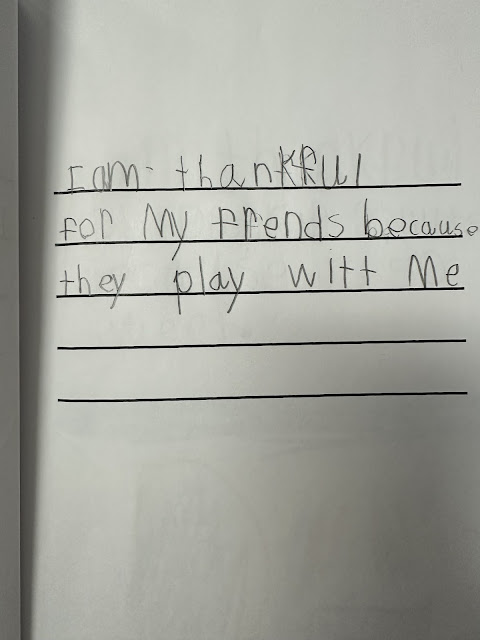 I am thankful
for My frends because
they play witt Me